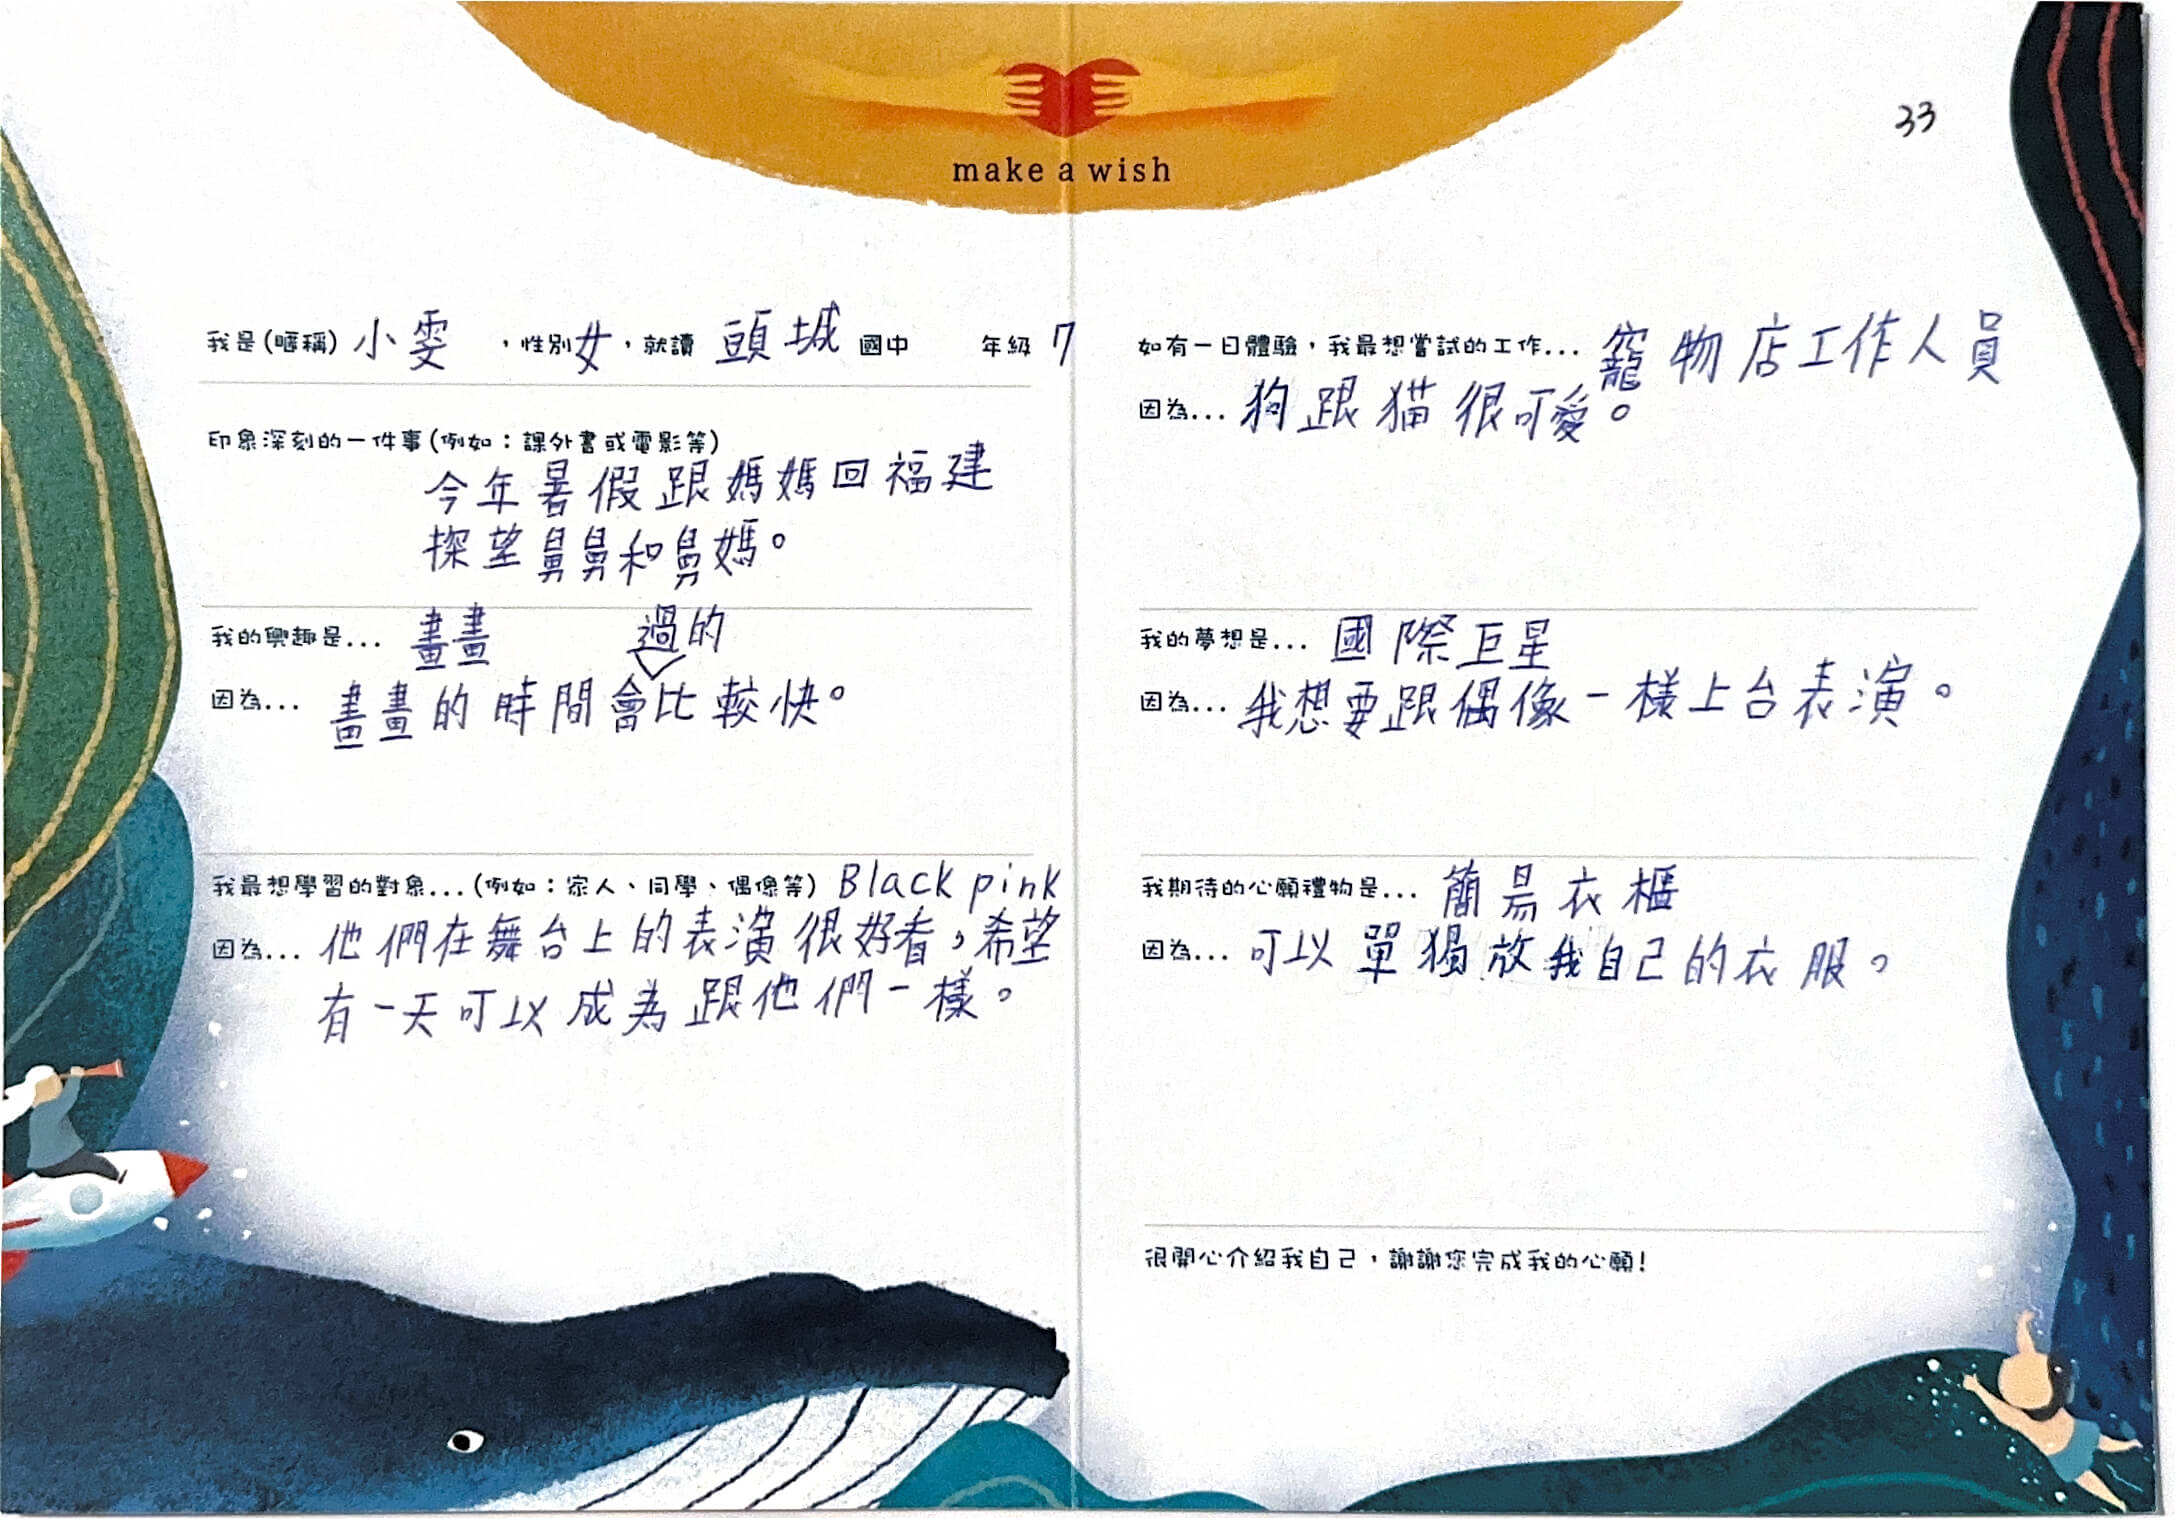 make a wish
33
我是(暱稱) 小雯 ，性別女，就讀 頭城 國中 年級 7
印象深刻的一件事(例如：課外書或電影等)
今年暑假跟媽媽回福建
探望舅舅和舅媽。
我的興趣是... 畫畫
過的
因為... 畫畫的時間會比較快。
我最想學習的對象...(例如：家人、同學、偶像等) Black pink
因為... 他們在舞台上的表演很好看，希望
有一天可以成為跟他們一樣。
如有一日體驗，我最想嘗試的工作... 寵物店工作人員
因為... 狗跟貓很可愛。
我的夢想是... 國際巨星
因為... 我想要跟偶像一樣上台表演。
我期待的心願禮物是... 簡易衣櫃
因為... 可以單獨放我自己的衣服。
很開心介紹我自己，謝謝您完成我的心願!